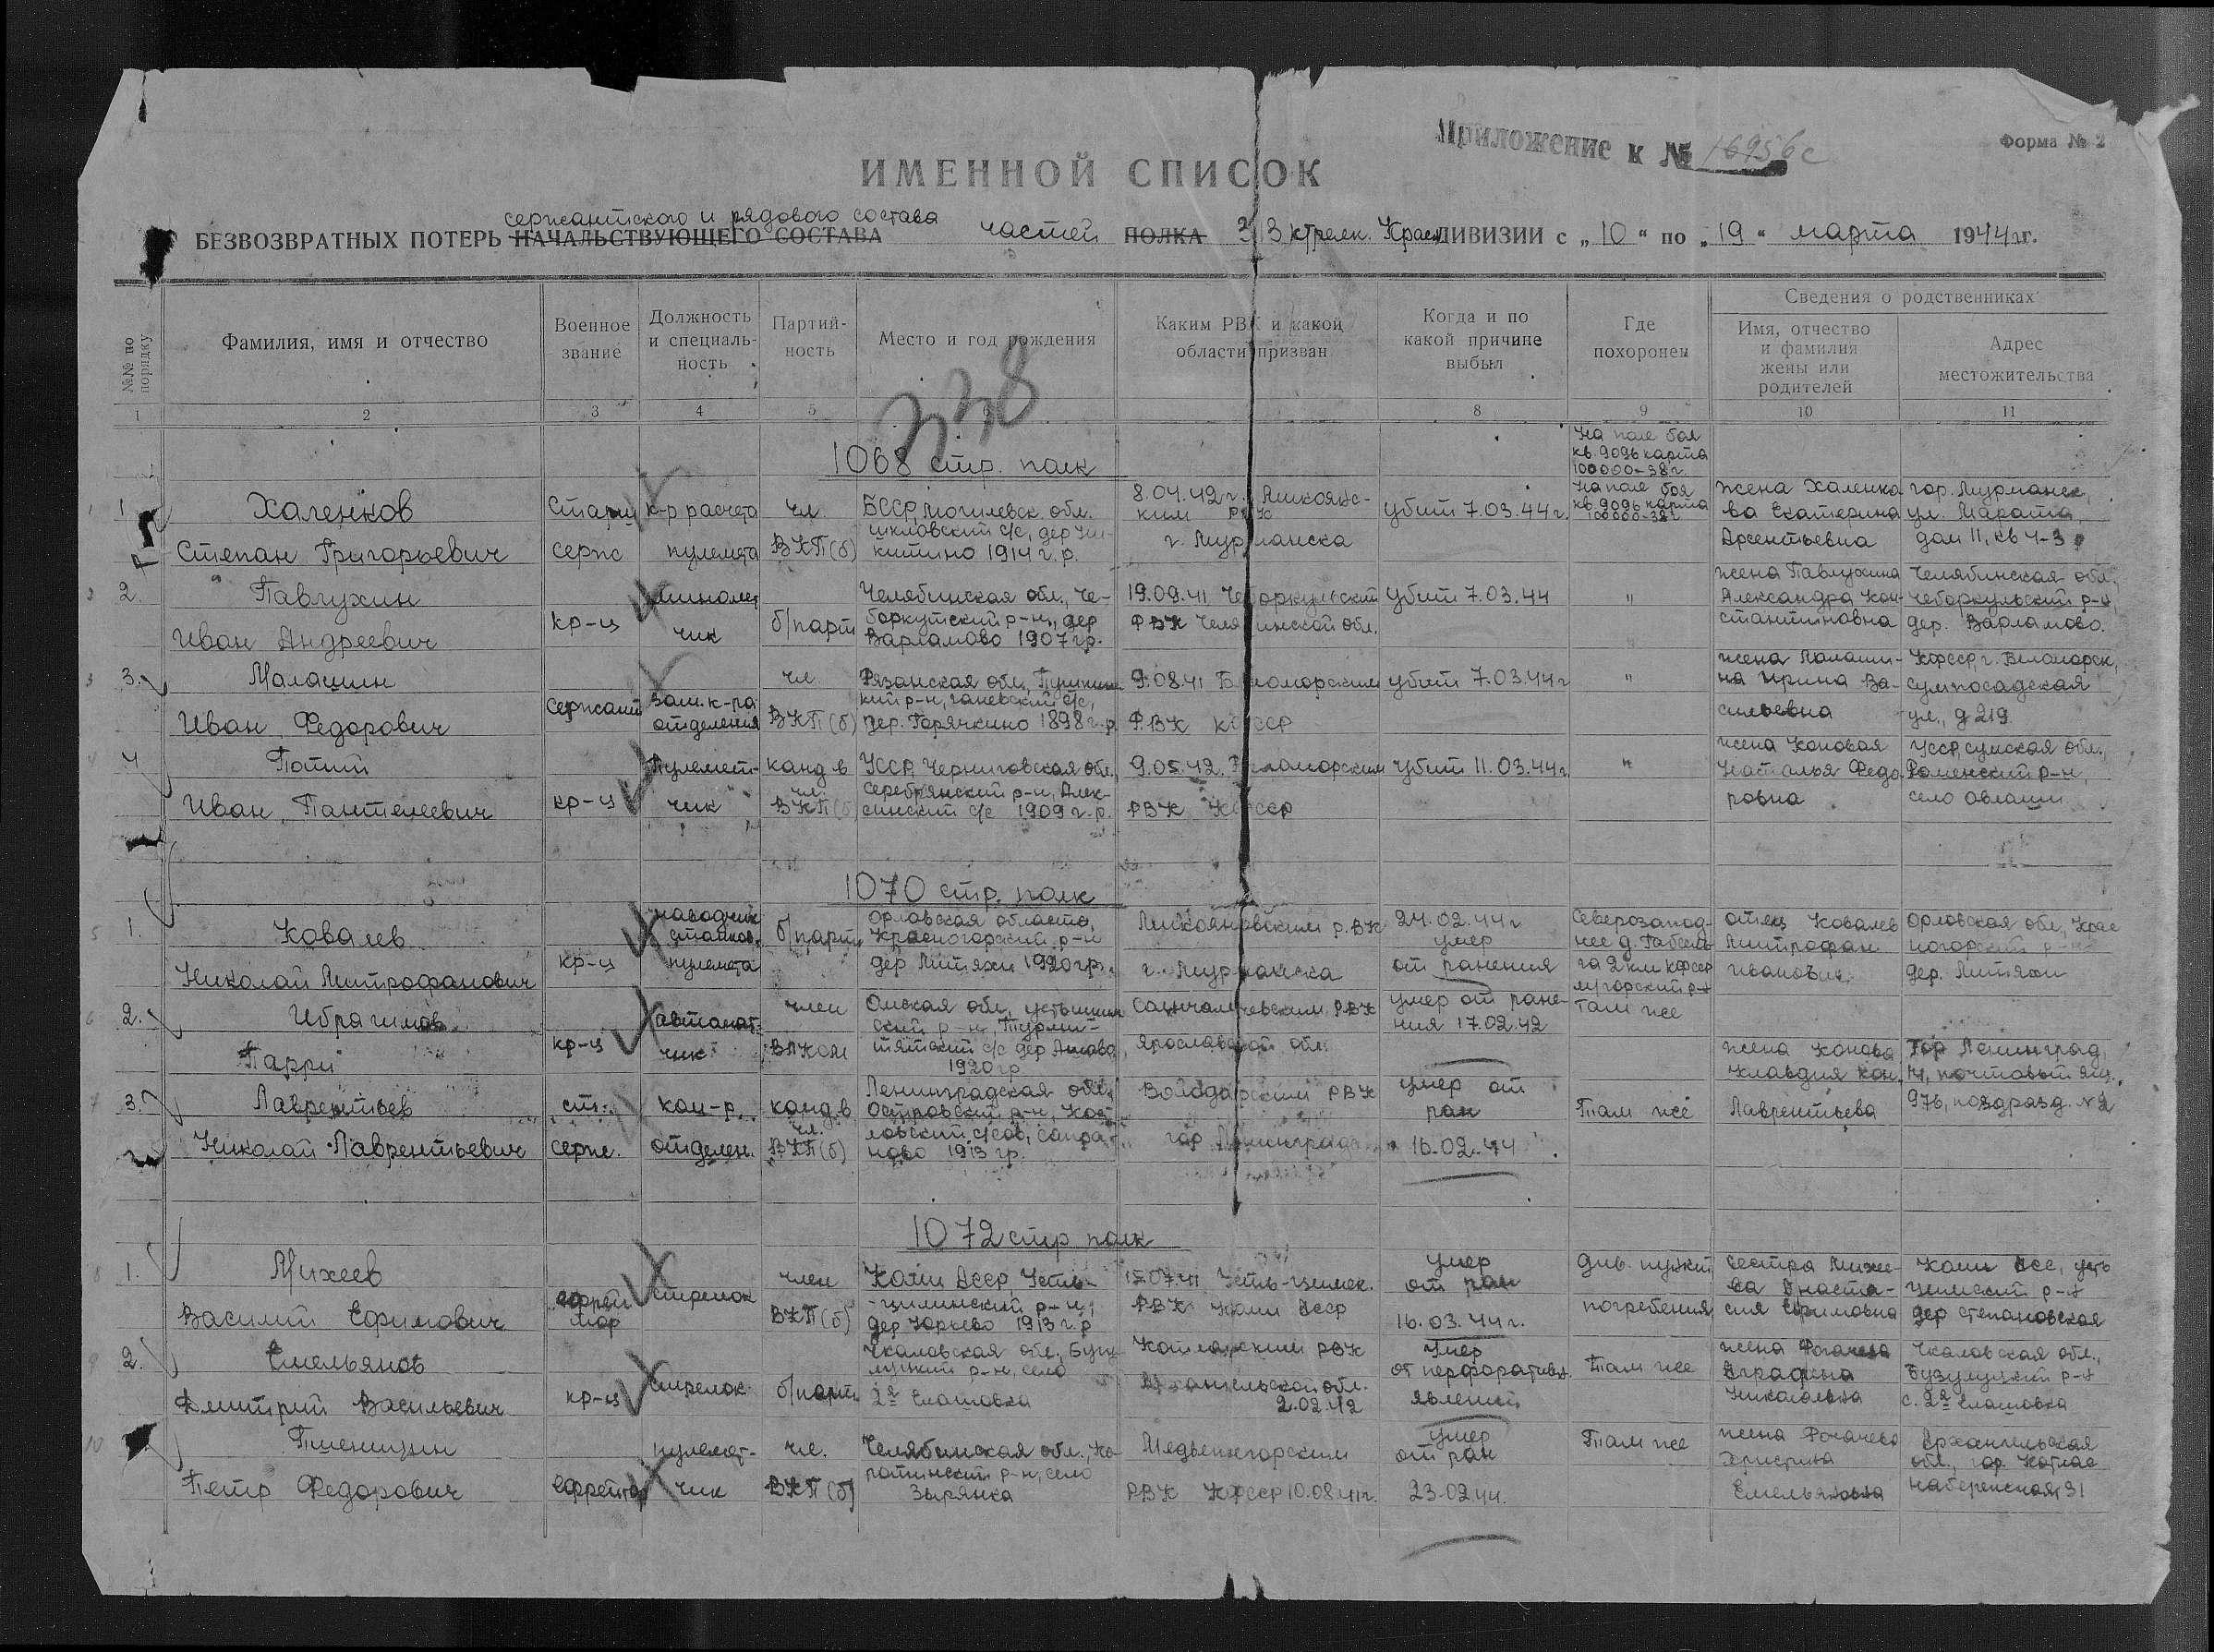 Приложение к № 16956с
Форма № 2
ИМЕННОЙ СПИСОК
сержантского и рядового состава
БЕЗВОЗВРАТНЫХ ПОТЕРЬ НАЧАЛЬСТВУЮЩЕГО СОСТАВА частей ПОЛКА стрелк. Красн ДИВИЗИИ с „10“ по „19“ марта 1944 г.
№№ по порядку
Фамилия, имя и отчество
Военное звание
Должность и специаль-ность
Партий-ность
Место и год рождения
Каким РВК и какой области призван
Когда и по какой причине выбыл
Где похоронен
Сведения о родственниках
Имя, отчество и фамилия жены или родителей
Адрес местожительства
1 2 3 4 5 8 9 10 11
338
На поле боя
кв. 9096 карта
100000-38г.
1068 стр. полк
1 Халенков
Степан Григорьевич
Старш
серж
к-р расчета
пулемета
чл
ВКП(б)
БССР, Могилевск. обл.
дер
китино 1914 г. р.
8.04.42 г. Микоянс-
ким РВК
г. Мурманска
убит 7.03.44 г.
На поле боя
кв. 9096 карта
100000-38г
жена Халенко
ва Екатерина
Арсентьевна
гор. Мурманск,
ул. Марата,
дом 11, кв 4-3
2. Павлухин
Иван Андреевич
кр-ц
миномет
чик
б/парт
Челябинская обл., Че-
баркульский р-н, дер
Варламово 1907 гр.
19.09.41 Чебаркульский
РВК Челябинской обл.
убит 7.03.44
"
жена Павлухина
Александра Кон-
стантиновна
Челябинская обл.
Чебаркульский р-н,
дер. Варламово.
3. Малашин
Иван Федорович
сержант
зам. к-ра
отделения
чл
ВКП(б)
Рязанская обл.,
кий р-н, с/с,
дер. Горячкино 1898 г. р.
9.08.41 Беломорским
РВК КФССР
убит 7.03.44 г
"
жена Малаши-
на Ирина Ва-
сильевна
КФССР, г. Беломорск,
сумпосадская
ул., д 219
4 Потий
Иван Пантелеевич
кр-ц
пулемет-
чик
канд. в
чл.
ВКП(б)
УССР, Черниговская обл.,
Серебрянский р-н, Алек-
синский с/с 1909 г. р.
9.05.42. Беломорским
РВК КФССР
убит 11.03.44 г.
"
жена Коновая
Наталья Федо-
ровна
УССР, сумская обл.,
Роменский р-н,
село
1070 стр. полк
1. Ковалев
Николай Митрофанович
кр-ц
наводчик
станков.
пулемета
б/парт.
Орловская область,
Красногорский р-н
дер Литяхи 1920 гр.
Микояновским р.ВК
г. Мурманска
24.02.44 г
умер
от ранения
Северозапад-
нее д.
2 км КФССР
отец Ковалев
Митрофан
Иванович
Орловская обл, Крас
ногорский р-н
дер. Литяхи
2. Ибрагимов
Гарри
кр-ц
автомат-
чик
член
ВЛКСМ
Омская обл,
ский р-н,
с/с дер
1920 гр
РВК
Ярославской обл.
умер от ране-
ния 17.02.42
Там же
3. Лаврентьев
Николай Лаврентьевич
ст.
серж.
ком-р.
отделен.
канд. в
чл.
ВКП(б)
Ленинградская обл.
Островский р-н,
1913 гр.
Володарским РВК
гор Ленинграда
умер от
ран
16.02.44
Там же
жена Конова
Клавдия Кон.
Лаврентьева
Гор Ленинград
4, почтовый ящ.
976, подразд. №2
1072 стр полк
1. Михеев
Василий Ефимович
ефрей
тор
стрелок
член
ВКП(б)
Коми Асср Усть-
-цилинский р-н,
дер Юрьево 1913 г. р
15.07.41 Усть-цилем.
РВК Коми Асср
Умер
от ран
16.03.44 г.
Див. пункт
погребения
сестра Михе-
ва Анаста-
сия Ефимовна
Коми Асс, усть
цилемский р-н
дер степановская
2. Емельянов
Дмитрий Васильевич
кр-ц
стрелок
б/парт.
Чкаловская обл. Бузу-
лукский р-н, село
2я Елашовка
Котласским РВК
Архангельской обл.
2.02.42
Умер
от перфоративн.
явлений
Там же
жена Рогачева
Аграфена
Николаевна
Чкаловская обл.,
Бузулукский р-н
с. 2я Елашовка
Пшеницын
Петр Федорович
Ефрейтор
пулемет-
чик
чл.
ВКП(б)
Челябинская обл., Ка-
р-н, село
Зырянка
Медвежегорским
РВК КФССР 10.08.41г.
умер
от ран
23.02.44.
Там же
жена Рогачева
Христина
Емельяновна
Архангельская
обл., гор. Котлас
набережная, 31